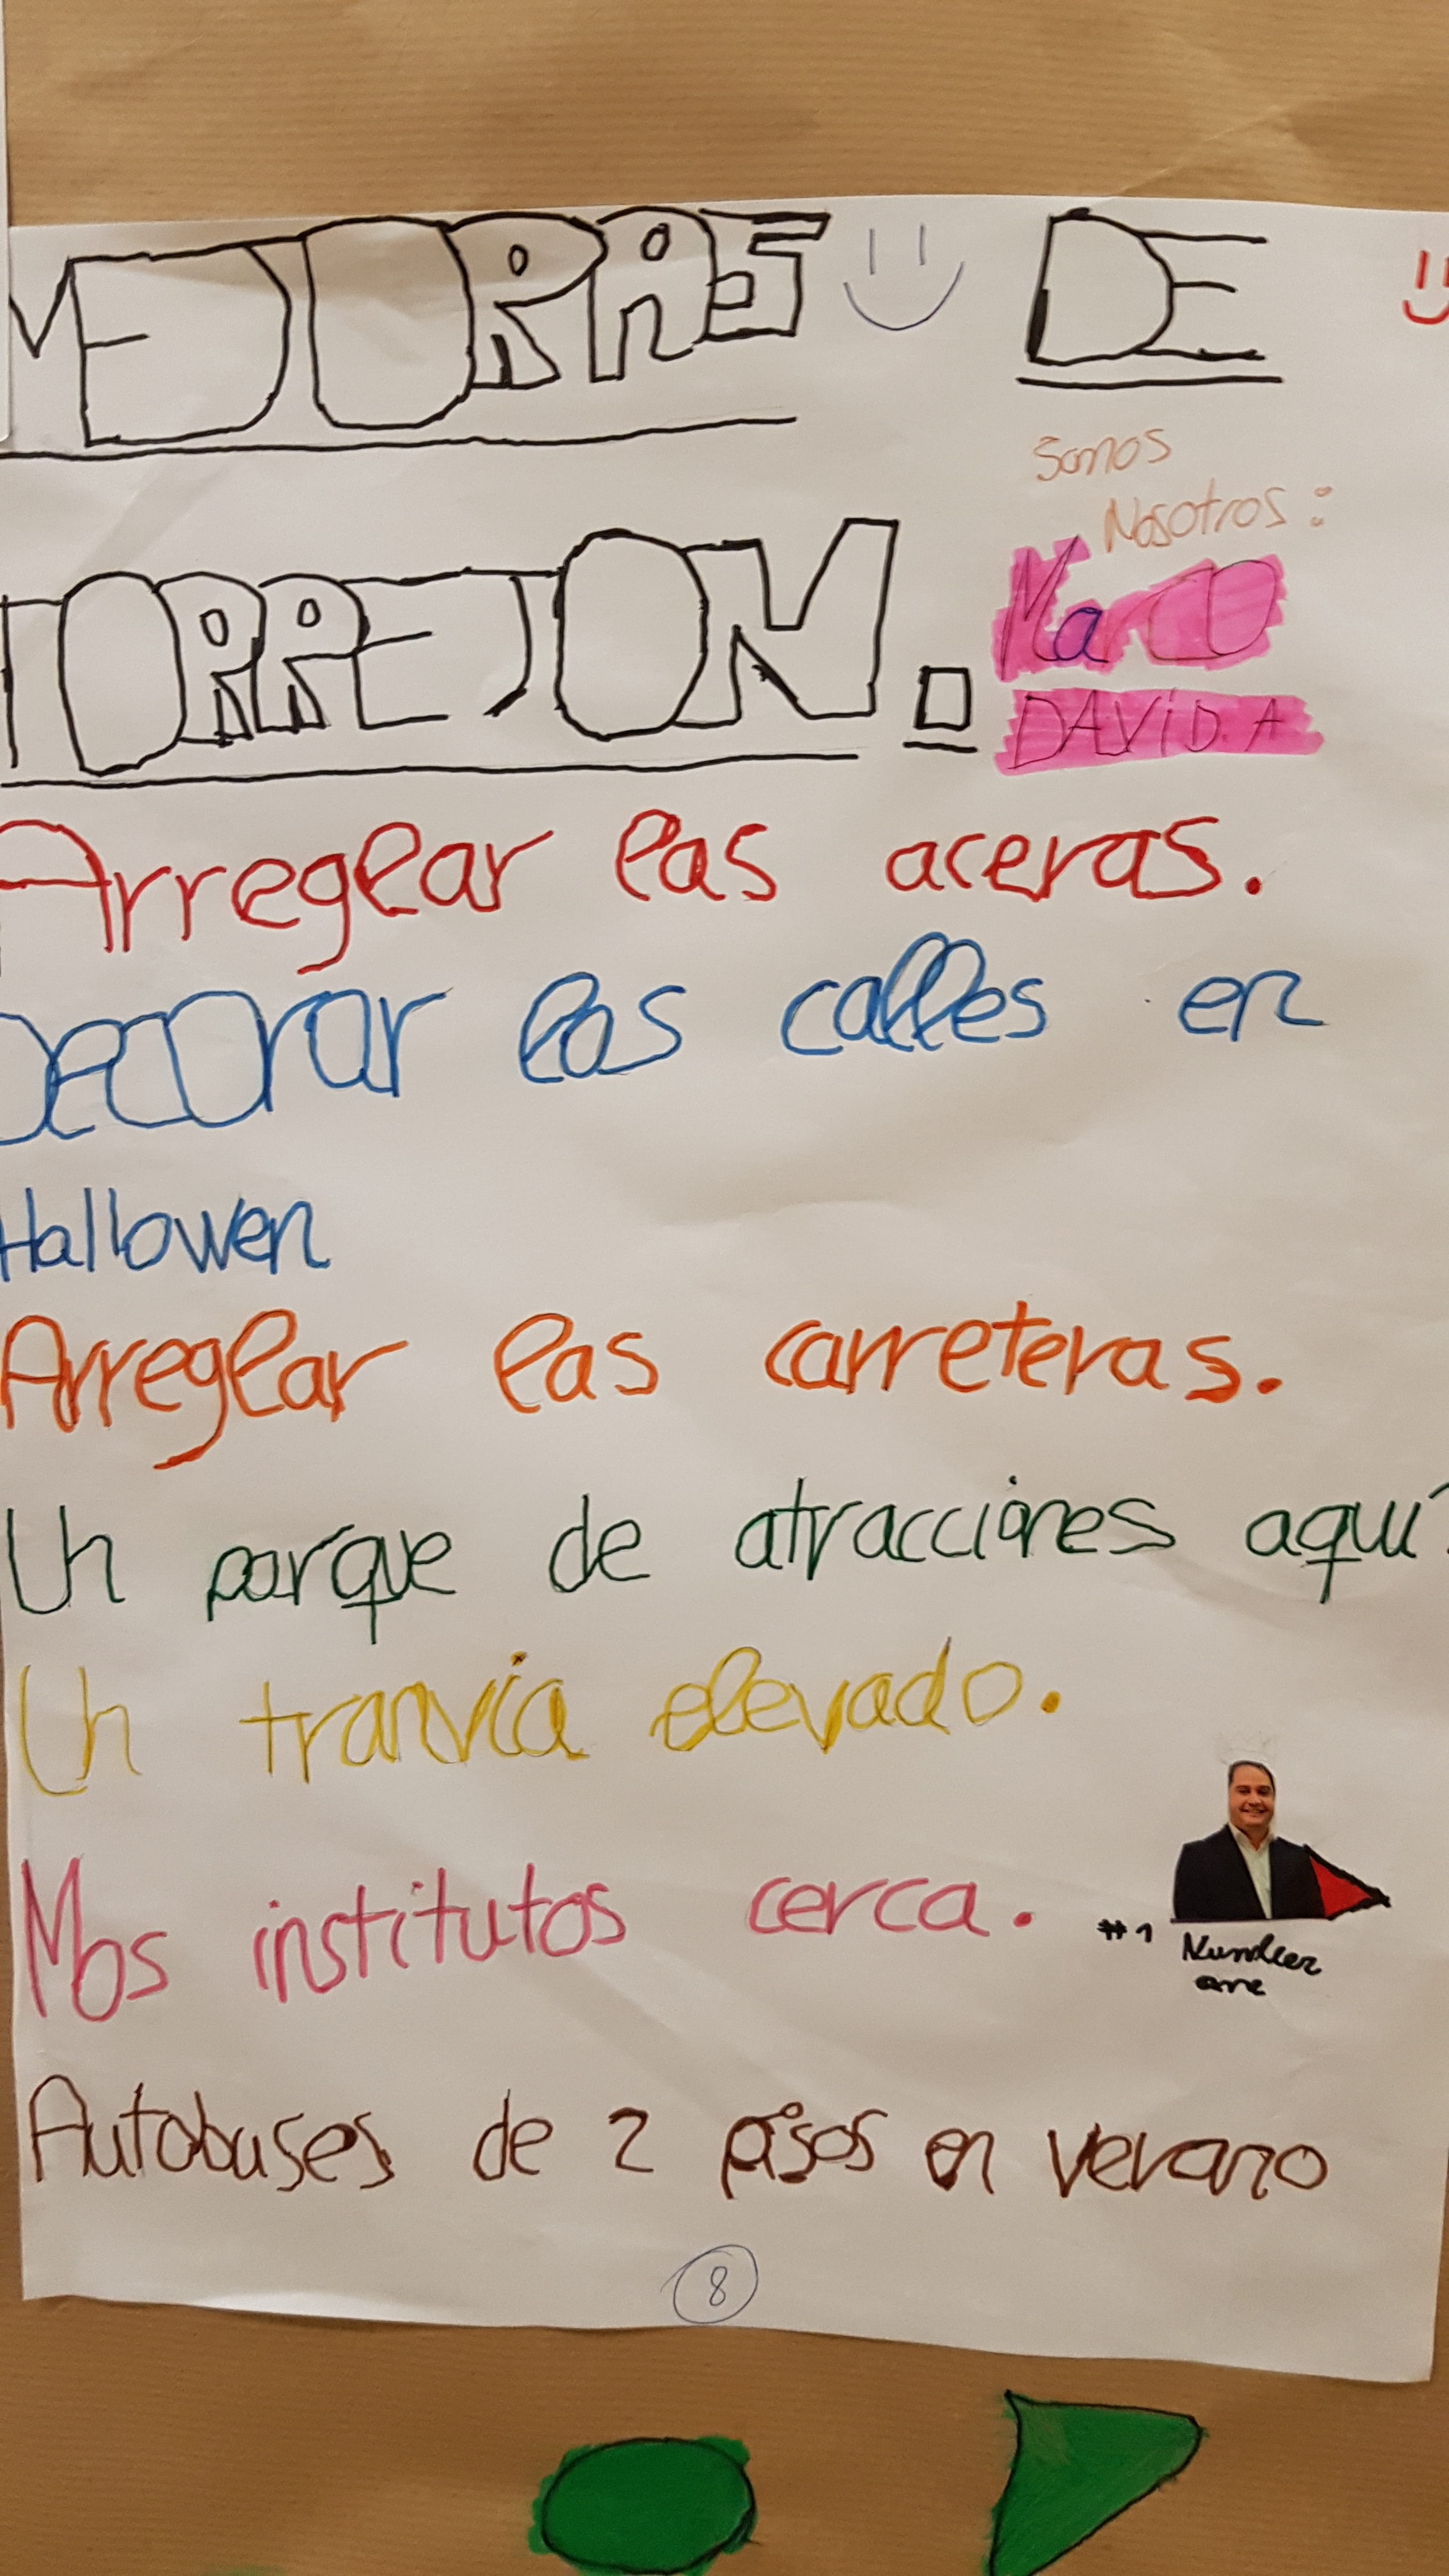 MEJORAS DE
Somos
Nosotros:
TORREJON.
Marco
DAVID.A
Arreglar las aceras.
Decorar las calles en
Hallowen
Arreglar las carreteras.
Un parque de atracciones aquí.
Un tranvía elevado.
Mos institutos cerca.
#1
Number
one
Autobuses de 2 pisos en verano
8